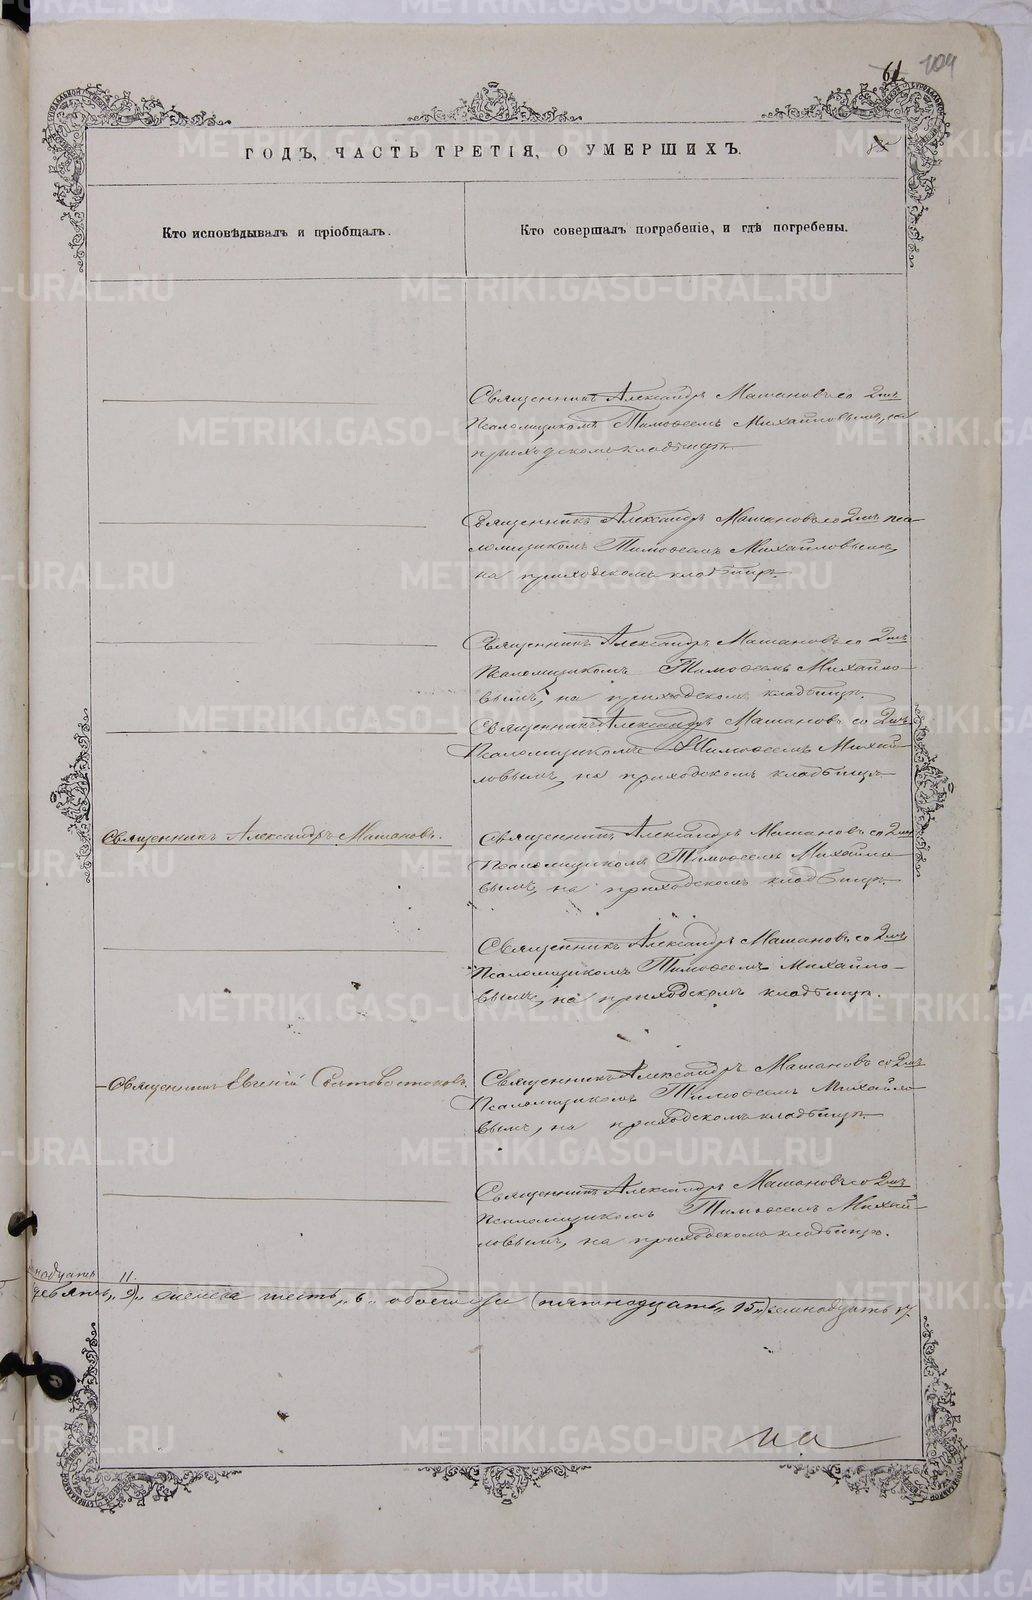 61. 104
ГОДЪ, ЧАСТЬ ТРЕТІЯ, О УМЕРШИХЪ.
Кто исповѣдывалъ и пріобщалъ.
Кто совершалъ погребеніе, и гдѣ погребены.
Священникъ Александръ Машановъ со 2мъ
Псаломщикомъ Тимофеемъ Михайловымъ, на
приходскомъ кладбищѣ.
Священникъ Александръ Машановъ со 2мъ пса-
ломщикомъ Тимофеемъ Михайловымъ,
на приходскомъ кладбищѣ.
Священникъ Александръ Машановъ со 2мъ
Псаломщикомъ Тимофеемъ Михайло-
вымъ, на приходскомъ кладбищѣ.
Священникъ Александръ Машановъ со 2мъ
Псаломщикомъ Тимофеемъ Михай-
ловымъ, на приходскомъ кладбищѣ.
Священникъ Александръ Машановъ.
Священникъ Александръ Машановъ со 2мъ
Псаломщикомъ Тимофеемъ Михайло-
вымъ, на приходскомъ кладбищѣ.
Священникъ Александръ Машановъ со 2мъ
Псаломщикомъ Тимофеемъ Михайло-
вымъ, на приходскомъ кладбищѣ.
Священникъ Евгеній Свѣтовостоковъ.
Священникъ Александръ Машановъ со 2мъ
Псаломщикомъ Тимофеемъ Михайло-
вымъ, на приходскомъ кладбищѣ.
Священникъ Александръ Машановъ со 2мъ
Псаломщикомъ Тимофеемъ Михай-
ловымъ, на приходскомъ кладбищѣ.
надцать 11.
девять „9„ женска шесть „6„ обоего (пятнадцать „15„) семнадцать 17.
на
METRIKI.GASO-URAL.RU